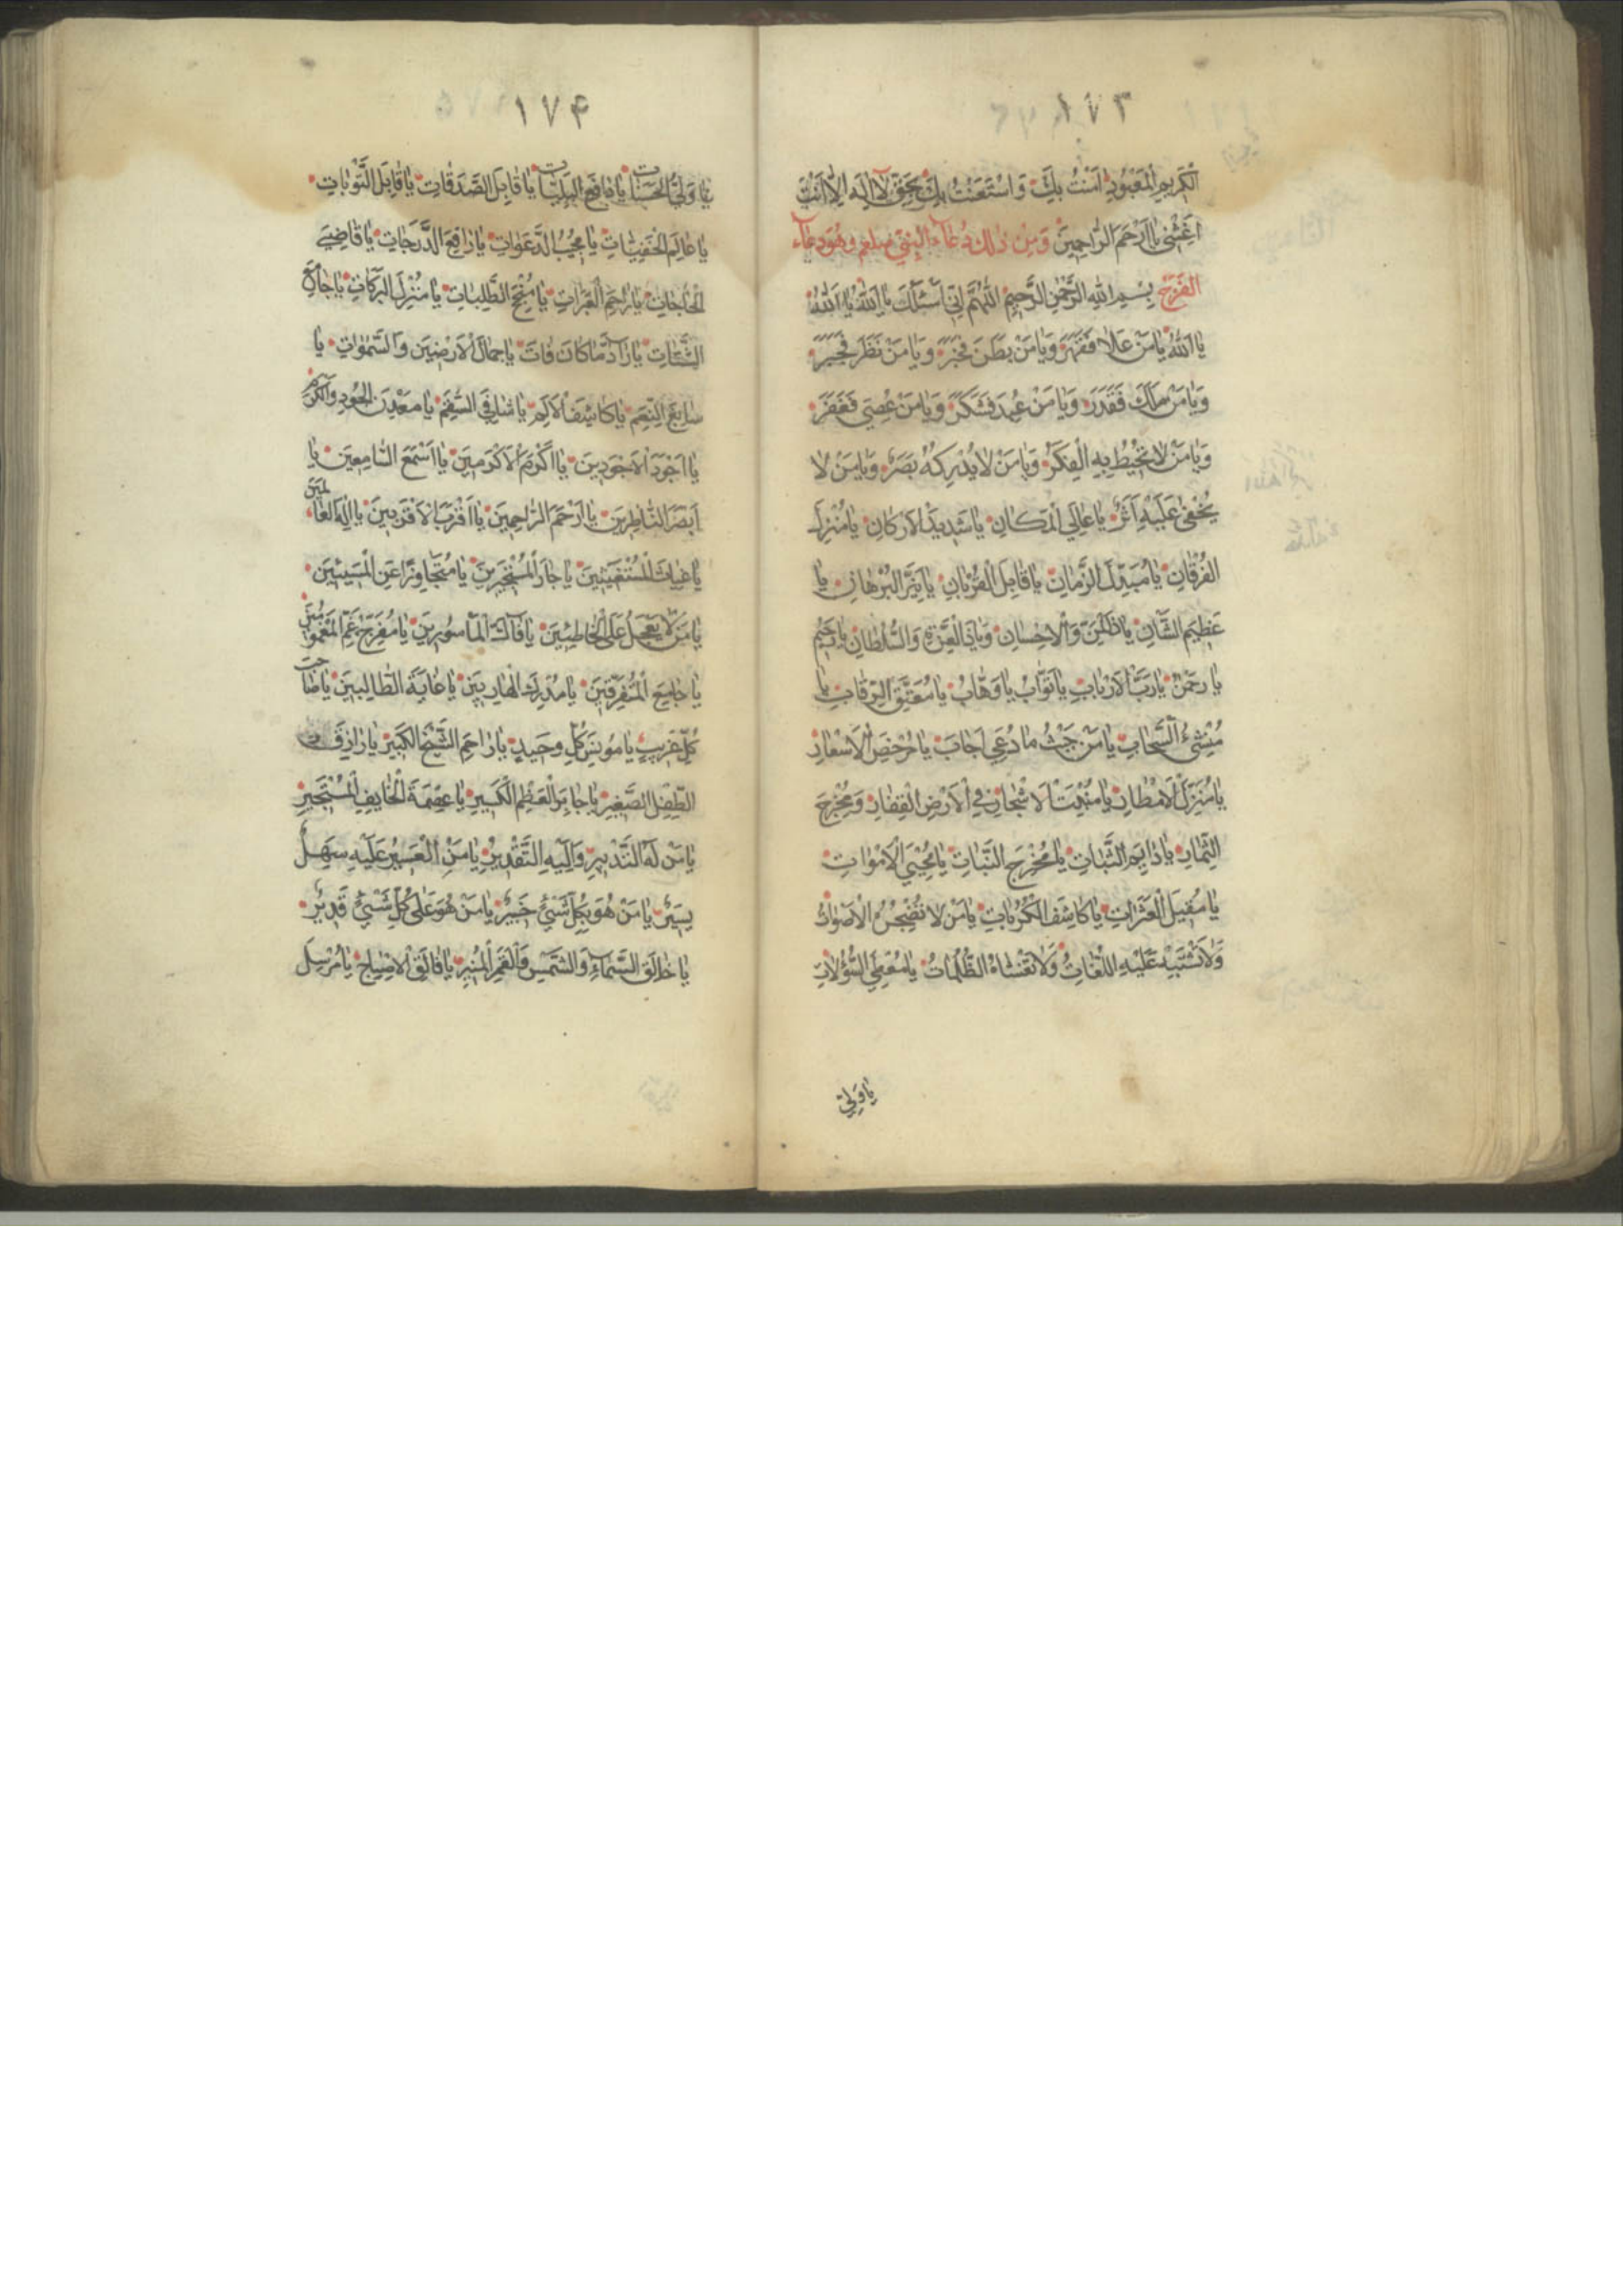 ١٧٣
الْكَرِيمِ الْمَعْبُودِ اٰمَنْتُ بِكَ وَاسْتَعَنْتُ بِكَ بِحَقِّ لَا اِلٰهَ اِلَّا اَنْتَ
اَغِثْنِى يَا اَرْحَمَ الرَّاحِمِينَ وَمِنْ ذٰلِكَ دُعَاءُ النَّبِيِّ صلعم وهُوَ دعاء
الفَرَجْ بِسْمِ اللهِ الرَّحْمٰنِ الرَّحِيمِ اَللّٰهُمَّ اِنِّى اَسْئَلُكَ يَا اَللهُ يَا اَللهُ
يَا اَللهُ يَا مَنْ عَلَا فَقَهَرَ وَيَا مَنْ بَطَنَ فَخَبَرَ وَيَا مَنْ نَظَرَ فَخَبَرَ
وَيَا مَنْ مَلَكَ فَقَدَرَ وَيَا مَنْ عُبِدَ فَشَكَرَ وَيَا مَنْ عُصِىَ فَغَفَرَ
وَيَا مَنْ لَا تُحِيْطُ بِهِ الْفِكَرُ وَيَا مَنْ لَا يُدْرِكُهُ بَصَرٌ وَيَا مَنْ لَا
يَخْفٰى عَلَيْهِ اَثَرٌ يَا عَالِىَ الْمَكَانِ يَا شَدِيدَ الْاَرْكَانِ يَا مُنْزِلَ
الْفُرْقَانِ يَا مُبَدِّلَ الزَّمَانِ يَا قَابِلَ الْقُرْبَانِ يَا نَيِّرَ الْبُرْهَانِ يَا
عَظِيمَ الشَّانِ يَا ذَا الْمَنِّ وَالْاِحْسَانِ وَيَا ذَا الْعِزَّةِ وَالسُّلْطَانِ يَا رَحِيمُ
يَا رَحْمٰنُ يَا رَبَّ الْاَرْبَابِ يَا تَوَّابُ يَا وَهَّابُ يَا مُعْتِقَ الرِّقَابِ يَا
مُنْشِئَ السَّحَابِ يَا مَنْ حَيْثُ مَا دُعِىَ اَجَابَ يَا مُرْخِصَ الْاَسْعَارِ
يَا مُنْزِلَ الْاَمْطَارِ يَا مُنْبِتَ الْاَشْجَارِ فِى الْاَرْضِ الْقِفَارِ وَمُخْرِجَ
الثِّمَارِ يَا دَايِمَ الثَّبَاتِ يَا مُخْرِجَ النَّبَاتِ يَا مُحْيِىَ الْاَمْوَاتِ
يَا مُقِيلَ الْعَثَرَاتِ يَا كَاشِفَ الْكُرُبَاتِ يَا مَنْ لَا تُضْجِرُهُ الْاَصْوَاتُ
وَلَا تَشْتَبِهُ عَلَيْهِ اللُّغَاتُ وَلَا تَغْشَاهُ الظُّلُمَاتُ يَا مُعْطِىَ السُّؤُلَاتِ
يَا وَلِىَّ
١٧۴
يَا وَلِىَّ الْحَسَنَاتِ يَا دَافِعَ الْبَلِيَّاتِ يَا قَابِلَ الصَّدَقَاتِ يَا قَابِلَ التَّوْبَاتِ
يَا عَالِمَ الْخَفِيَّاتِ يَا مُجِيْبَ الدَّعَوَاتِ يَا رَافِعَ الدَّرَجَاتِ يَا قَاضِىَ
الْحَاجَاتِ يَا رَاحِمَ الْعَبَرَاتِ يَا مُنْجِحَ الطَّلِبَاتِ يَا مُنْزِلَ الْبَرَكَاتِ يَا جَامِعَ
الشَّتَاتِ يَا رَادَّ مَا كَانَ فَاتَ يَا جَمَالَ الْاَرَضِيْنَ وَالسَّمٰوَاتِ يَا
سَابِغَ النِّعَمِ يَا كَاشِفَ الْاَلَمِ يَا شَافِىَ السَّقَمِ يَا مَعْدِنَ الْجُودِ وَالْكَرَمِ
يَا اَجْوَدَ الْاَجْوَدِيْنَ يَا اَكْرَمَ الْاَكْرَمِيْنَ يَا اَسْمَعَ السَّامِعِيْنَ يَا
اَبْصَرَ النَّاظِرِيْنَ يَا اَرْحَمَ الرَّاحِمِيْنَ يَا اَقْرَبَ الْاَقْرَبِيْنَ يَا اِلٰهَ الْعَالَمِيْنَ
يَا غِيَاثَ الْمُسْتَغِيْثِيْنَ يَا جَارَ الْمُسْتَجِيْرِيْنَ يَا مُتَجَاوِزًا عَنِ الْمُسِيْئِيْنَ
يَا مَنْ لَا يَعْجَلُ عَلَى الْخَاطِئِيْنَ يَا فَاكَّ الْمَاْسُورِيْنَ يَا مُفَرِّجَ غَمِّ الْمَغْمُومِيْنَ
يَا جَامِعَ الْمُتَفَرِّقِيْنَ يَا مُدْرِكَ الْهَارِبِيْنَ يَا غَايَةَ الطَّالِبِيْنَ يَا صَاحِبَ
كُلِّ غَرِيْبٍ يَا مُونِسَ كُلِّ وَحِيْدٍ يَا رَاحِمَ الشَّيْخِ الْكَبِيْرِ يَا رَازِقَ
الطِّفْلِ الصَّغِيْرِ يَا جَابِرَ الْعَظْمِ الْكَسِيْرِ يَا عِصْمَةَ الْخَايِفِ الْمُسْتَجِيْرِ
يَا مَنْ لَهُ التَّدْبِيْرُ وَاِلَيْهِ التَّقْدِيْرُ يَا مَنِ الْعَسِيْرُ عَلَيْهِ سَهْلٌ
يَسِيْرٌ يَا مَنْ هُوَ بِكُلِّ شَىْءٍ خَبِيْرٌ يَا مَنْ هُوَ عَلٰى كُلِّ شَىْءٍ قَدِيْرٌ
يَا خَالِقَ السَّمَاءِ وَالشَّمْسِ وَالْقَمَرِ الْمُنِيْرِ يَا فَالِقَ الْاِصْبَاحِ يَا مُرْسِلَ